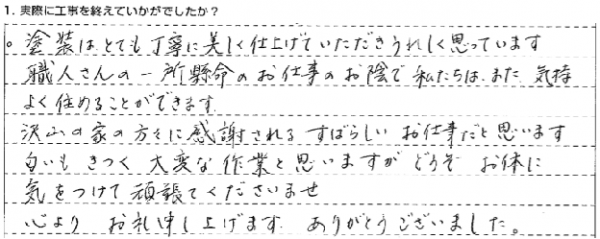 1. 実際に工事を終えていかがでしたか？
。塗装はとても丁寧に美しく仕上げていただきうれしく思っています
職人さんの一所懸命のお仕事のお陰で私たちは、また、気持
よく住めることができます
沢山の家の方々に感謝される すばらしい お仕事だと思います
匂いも きつく 大変な作業と思いますが どうぞ お体に
気をつけて頑張てくださいませ
心より お礼申し上げます。ありがとうございました。